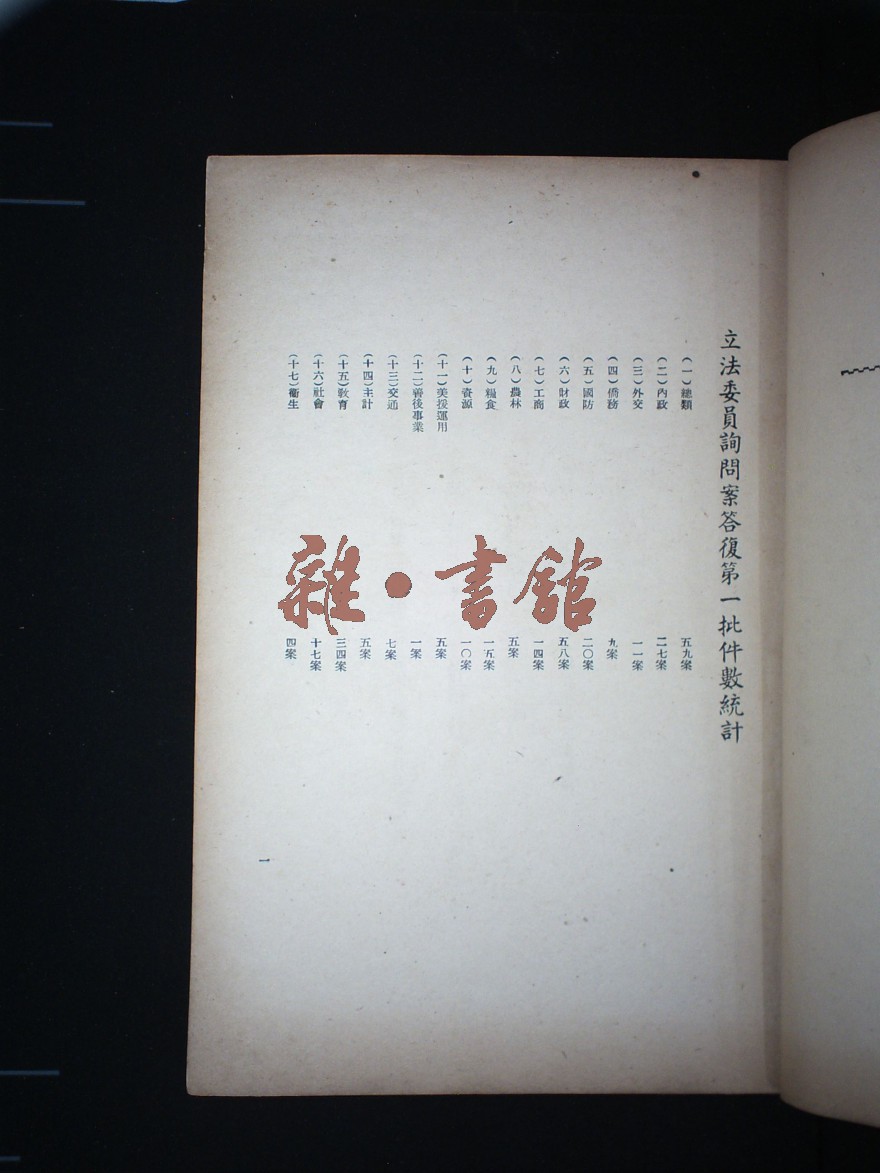 立法委員詢問案答復第一批件數統計
(一)總類 五九案
(二)內政 二七案
(三)外交 一一案
(四)僑務 九案
(五)國防 二〇案
(六)財政 五八案
(七)工商 一四案
(八)農林 五案
(九)糧食 一五案
(十)資源 一〇案
(十一)美援運用 五案
(十二)善後事業 一案
(十三)交通 七案
(十四)主計 五案
(十五)教育 三四案
(十六)社會 十七案
(十七)衞生 四案
一
雜·書館